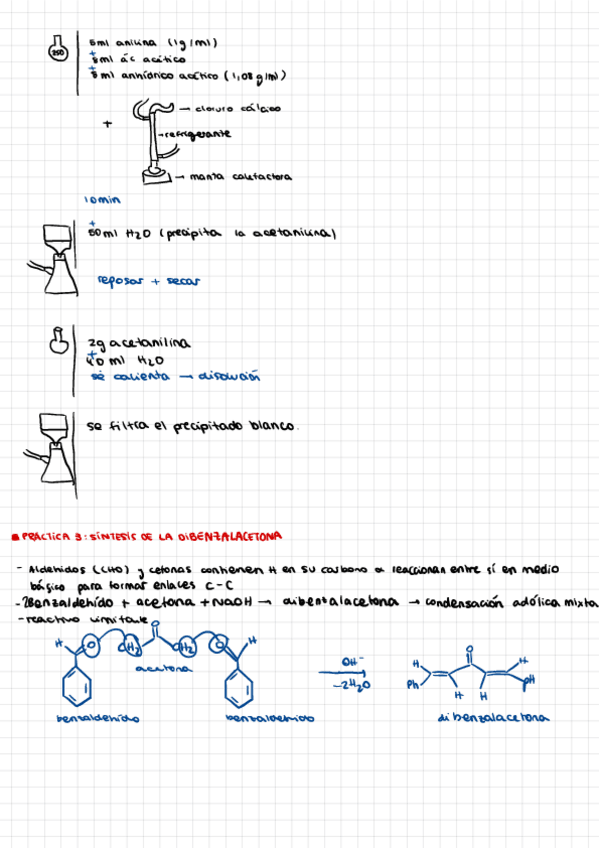 250
5ml anilina (1g/ml)
+
8ml ác acético
+
8ml anhídrido acético (1,08g/ml)
+
→ cloruro cálcico
→ refrigerante
→ manta calefactora
10min
+
50ml H2O (precipita la acetanilina)
reposar + secar
2g acetanilina
+
40 ml H2O
se calienta → disolución
se filtra el precipitado blanco.
PRÁCTICA 3: SÍNTESIS DE LA DIBENZALACETONA
- Aldehidos (CHO) y cetonas contienen H en su carbono α reaccionan entre sí en medio
básico para formar enlaces C-C
- 2Benzaldehído + acetona + NaOH → dibenzalacetona → condensación adólica mixta
- reactivo limitante
H O CH2 O CH2 O H
acetona
OH⁻
-2H2O
H O H
Ph H H pH
benzaldehido benzaldehido dibenzalacetona